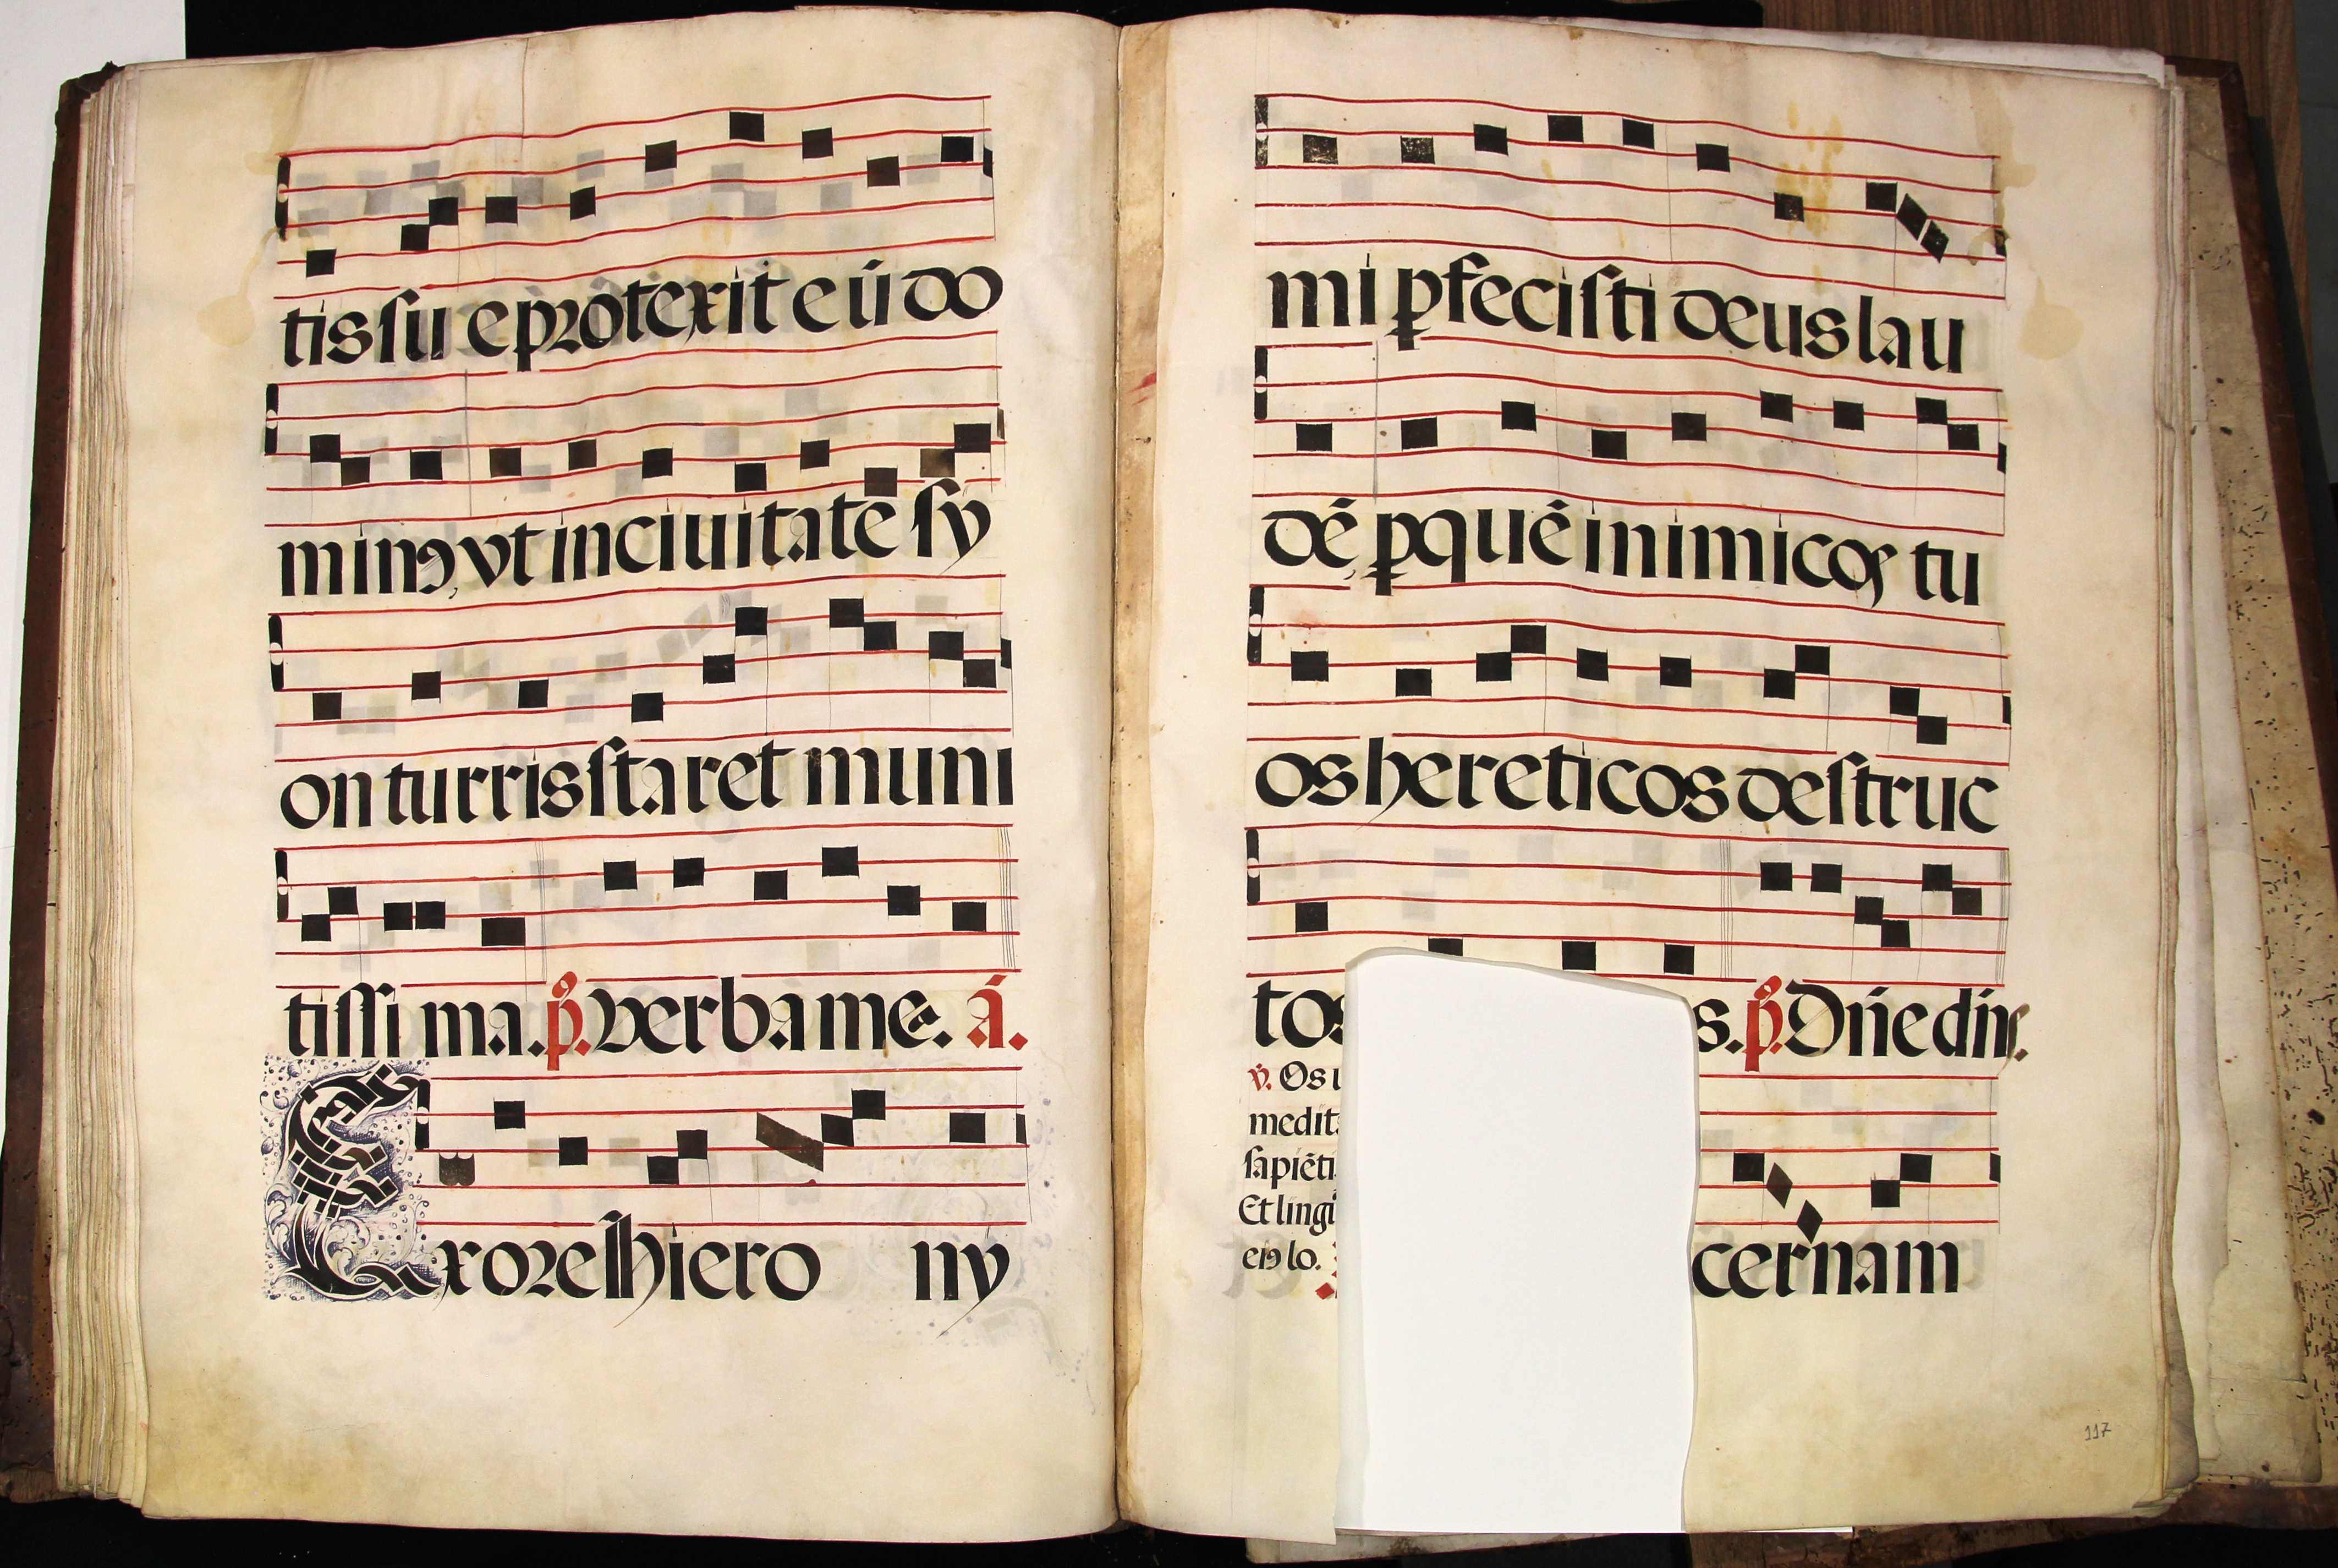 tis su e protexit eū do
minꝰ, vt in ciuitate sy
on turris staret muni
tissi ma. p̄. Verba mea. á.
Ex ore hiero ny
mi ꝑfecisti deus lau
dē, ꝑquē inimicoſ tu
os hereticos destruc
tos s. p̄. Dn̄e dn̄s.
v̄. Os
medit
sapiēti
Et lingu
eiꝰ lo.
cernam
117